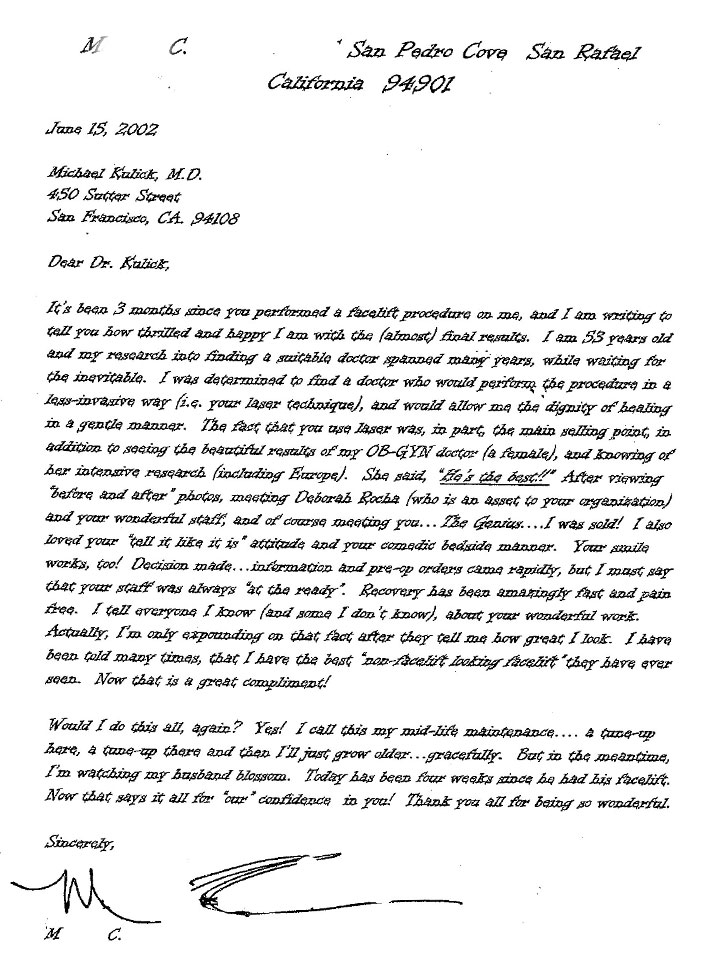 M C. San Pedro Cove San Rafael
California 94901
June 15, 2002
Michael Kulick, M.D.
450 Sutter Street
San Francisco, CA. 94108
Dear Dr. Kulick,
It's been 3 months since you performed a facelift procedure on me, and I am writing to
tell you how thrilled and happy I am with the (almost) final results. I am 53 years old
and my research into finding a suitable doctor spanned many years, while waiting for
the inevitable. I was determined to find a doctor who would perform the procedure in a
less-invasive way (i.e. your laser technique), and would allow me the dignity of healing
in a gentle manner. The fact that you use laser was, in part, the main selling point, in
addition to seeing the beautiful results of my OB-GYN doctor (a female), and knowing of
her intensive research (including Europe). She said, "He's the best!!" After viewing
"before and after" photos, meeting Deborah Rocha (who is an asset to your organization)
and your wonderful staff, and of course meeting you... The Genius....I was sold! I also
loved your "tell it like it is" attitude and your comedic bedside manner. Your smile
works, too! Decision made...information and pre-op orders came rapidly, but I must say
that your staff was always "at the ready". Recovery has been amazingly fast and pain
free. I tell everyone I know (and some I don't know), about your wonderful work.
Actually, I'm only expounding on that fact after they tell me how great I look. I have
been told many times, that I have the best "non-facelift looking facelift" they have ever
seen. Now that is a great compliment!
Would I do this all, again? Yes! I call this my mid-life maintenance.... a tune-up
here, a tune-up there and then I'll just grow older...gracefully. But in the meantime,
I'm watching my husband blossom. Today has been four weeks since he had his facelift.
Now that says it all for "our" confidence in you! Thank you all for being so wonderful.
Sincerely,
M C.